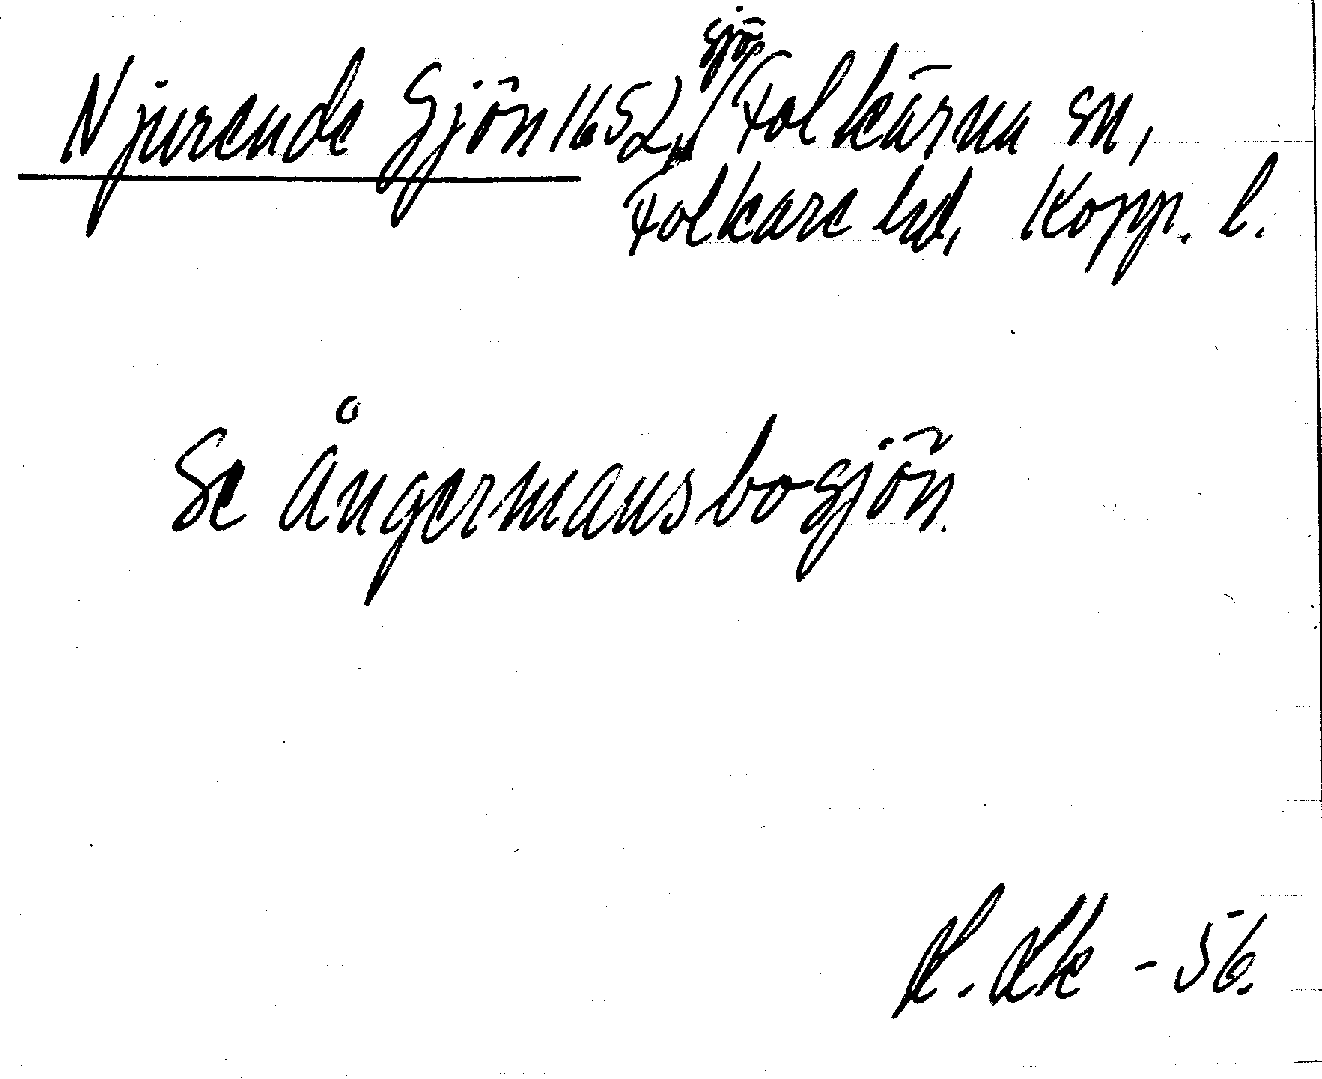 Njurende Sjön 1652, sjö Folkärna sn,
Folkare hd, Kopp. l.
Se Ångermansbosjön.
-56.